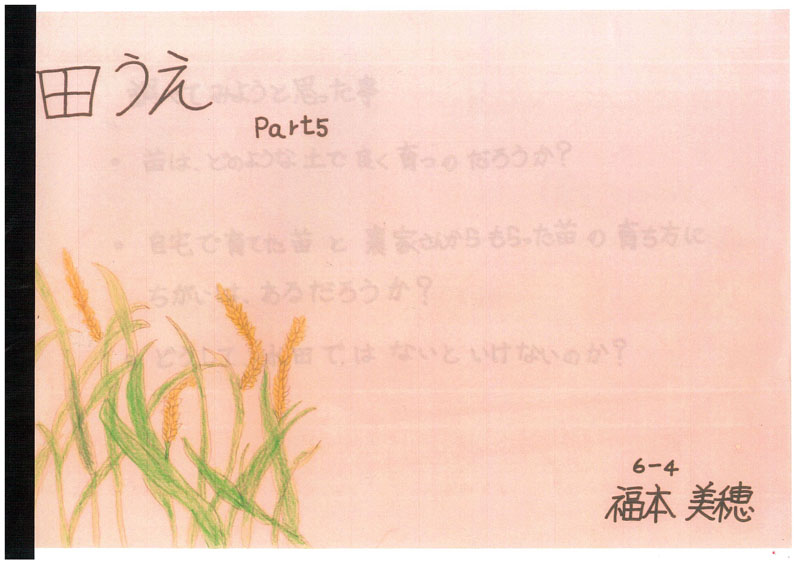 田うえ
Part5
調べてみようと思った事
• 苗は、どのような土で良く育つのだろうか?
• 自宅で育てた苗と農家さんからもらった苗の育ち方に
ちがいは、あるだろうか?
• どうして、水田で、はないといけないのか?
6-4
福本 美穂